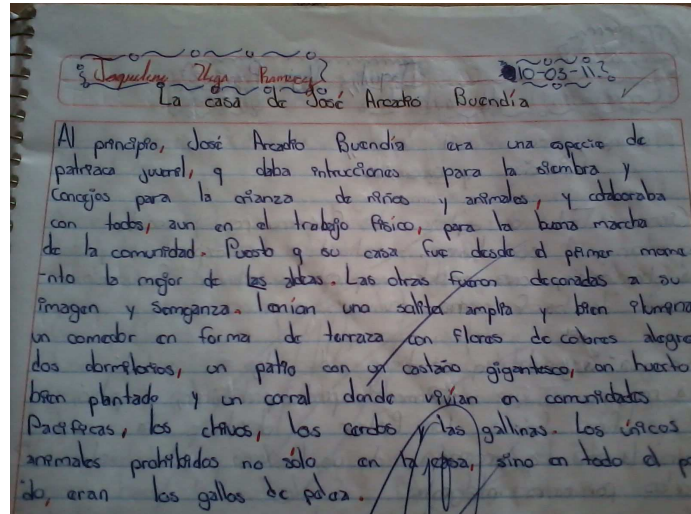 Jaqueline Vega Ramirez
10-03-11
La casa de José Arcadio Buendía
Al principio, José Arcadio Buendía era una especie de
patriaca juvenil, q daba intrucciones para la siembra y
Concejos para la crianza de niños y animales, y colaboraba
con todos, aun en el trabajo físico, para la buena marcha
de la comunidad. Puesto q su casa fue desde el primer mome
-nto la mejor de las aldeas. Las otras fueron decoradas a su
imagen y semganza. Tenían una salita amplia y bien ilumina
un comedor en forma de terraza con flores de colores alegre
dos dormitorios, un patio con un castaño gigantesco, un huerto
bien plantado y un corral donde vivían en comunidades
Pacificas, los chivos, los cerdos y las gallinas. Los únicos
animales prohibidos no sólo en la casa, sino en todo el p
do, eran los gallos de pelea.